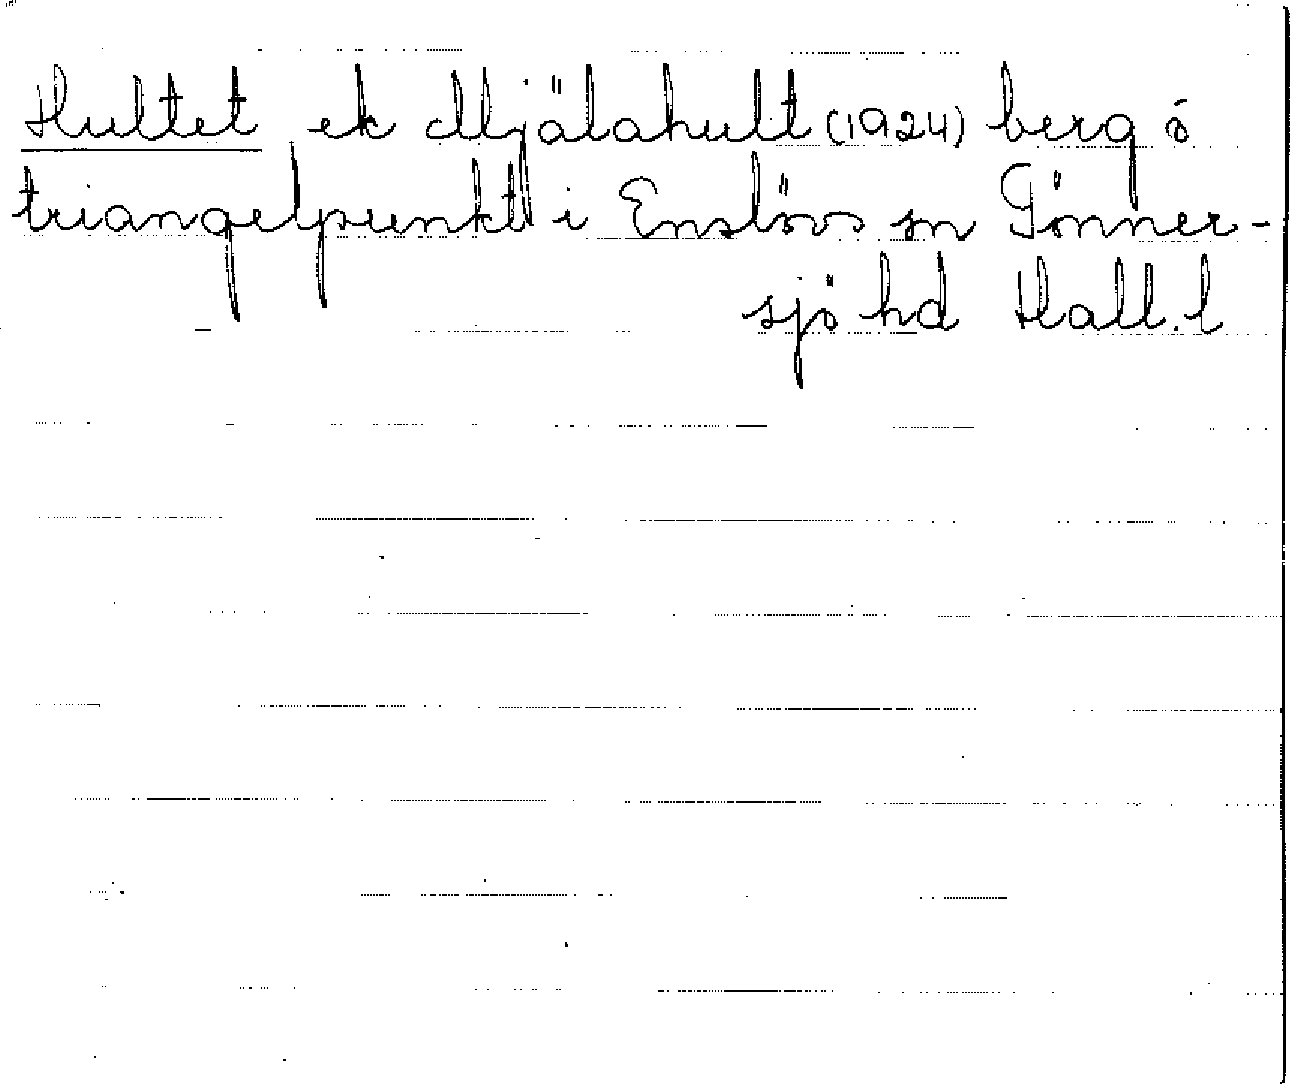 Hultet ek Mjälahult (1924) berg o
triangelpunkt i Enslövs sn Tönner-
sjö hd Hall. l